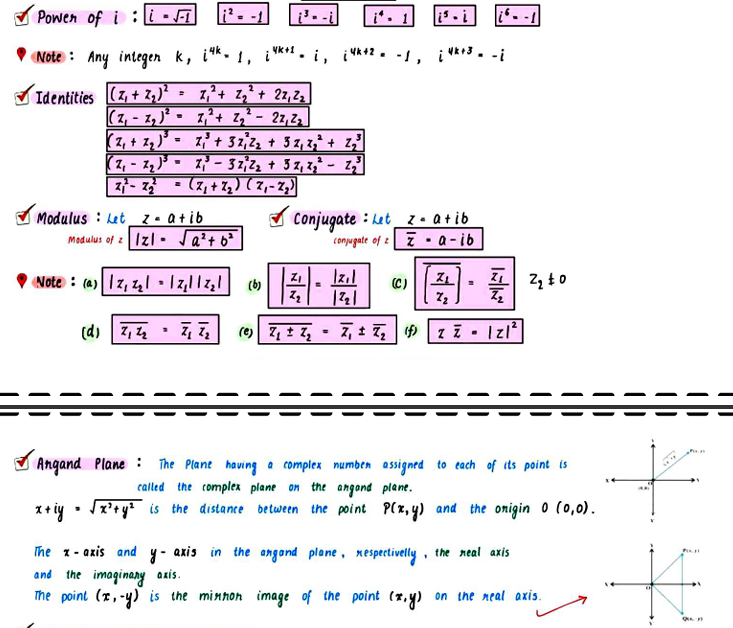 Power of i : i = √-1 i² = -1 i³ = -i i⁴ = 1 i⁵ = i i⁶ = -1
Note : Any integer k, i⁴ᵏ = 1, i⁴ᵏ⁺¹ = i, i⁴ᵏ⁺² = -1, i⁴ᵏ⁺³ = -i
Identities (z₁ + z₂)² = z₁² + z₂² + 2z₁z₂
(z₁ - z₂)² = z₁² + z₂² - 2z₁z₂
(z₁ + z₂)³ = z₁³ + 3z₁²z₂ + 3z₁z₂² + z₂³
(z₁ - z₂)³ = z₁³ - 3z₁²z₂ + 3z₁z₂² - z₂³
z₁² - z₂² = (z₁ + z₂)(z₁ - z₂)
Modulus : Let z = a + ib Conjugate : Let z = a + ib
Modulus of z |z| = √(a² + b²) conjugate of z z̅ = a - ib
Note : (a) |z₁ z₂| = |z₁||z₂| (b) |z₁/z₂| = |z₁|/|z₂| (c) \overline{(z₁/z₂)} = z̅₁/z̅₂ z₂ ≠ 0
(d) \overline{z₁z₂} = z̅₁ z̅₂ (e) \overline{z₁ ± z₂} = z̅₁ ± z̅₂ (f) z z̅ = |z|²
Argand Plane : The Plane having a complex number assigned to each of its point is
called the complex plane or the argand plane.
x + iy = √(x² + y²) is the distance between the point P(x, y) and the origin O (0,0).
The x - axis and y - axis in the argand plane, respectivelly, the real axis
and the imaginary axis.
The point (x, -y) is the mirror image of the point (x, y) on the real axis.